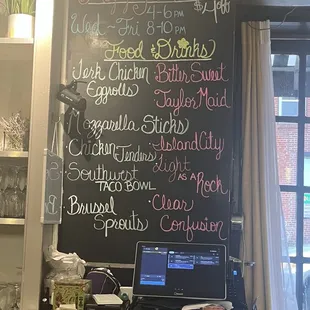 4-6pm
Wed-Fri 8-10pm
Food & Drinks
Jerk Chicken
Eggrolls
Mozzarella Sticks
• Chicken Tenders
• Southwest
TACO BOWL
• Brussel
Sprouts
• Bitter Sweet
• Taylor Maid
• Island City
• Light
AS A Rock
• Clear
Confusion